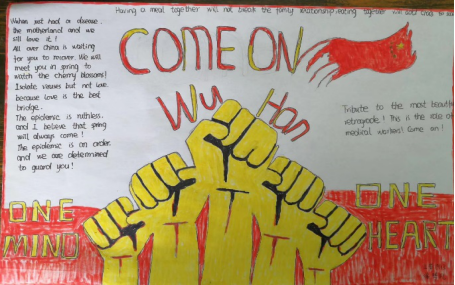 Having a meal together will not break the family relationship. eating together
COME ON
Wu Han
Wuhan just had a disease.
the motherland and we
still love it!
All over China is waiting
for you to recover. We will
meet you in spring to
watch the cherry blossoms!
Isolate viruses but not love.
because love is the best
bridge.
The epidemic is ruthless.
and I believe that spring
will always come!
The epidemic is an order.
and we are determined
to guard you!
Tribute to the most beautiful
retrograde! This is the role of
medical workers! Come on!
ONE
MIND
ONE
HEART